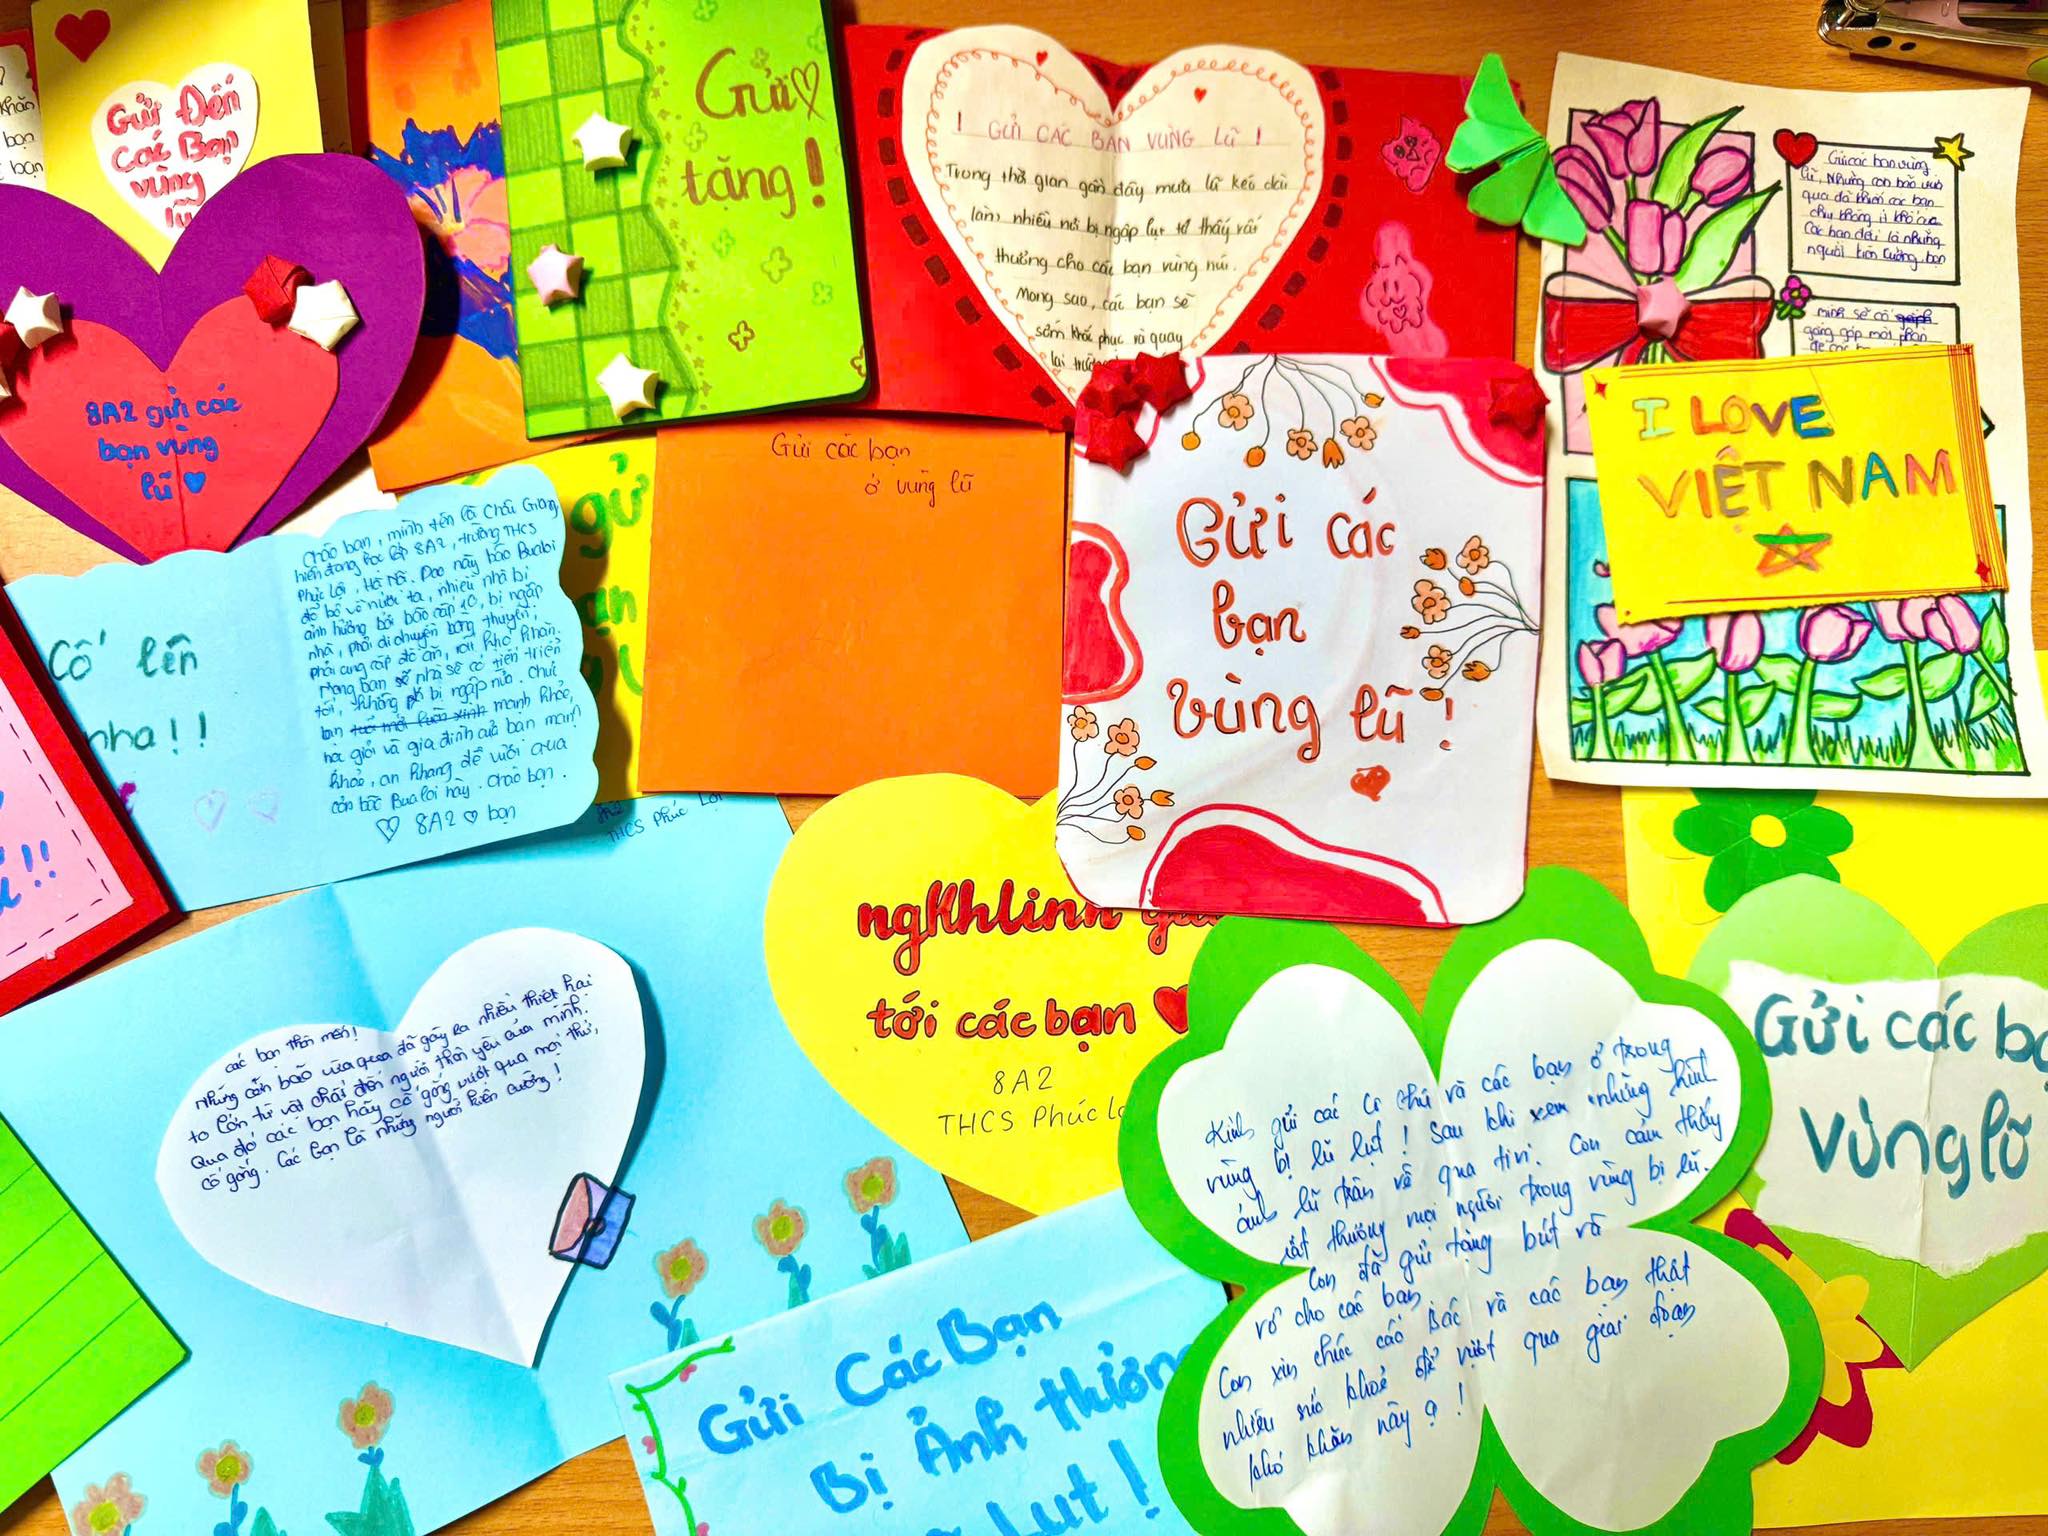 Gửi Đến
các Bạn
vùng
lũ
khăn
bạn
bạn
8A2 gửi các
bạn vùng
lũ
Gửi
tặng!
! GỬI CÁC BẠN VÙNG LŨ !
Trong thời gian gần đây mưa lũ kéo dài
làm nhiều nơi bị ngập lụt tớ thấy rất
thương cho các bạn vùng núi.
Mong sao, các bạn sẽ
sớm khắc phục và quay
lại trường
Gửi các bạn vùng
lũ, Những cơn bão vừa
qua đã khiến các bạn
chịu không ít khó
Các bạn đều là những
người kiên cường, bạn
mình sẽ cố
gắng góp một phần
I LOVE
VIỆT NAM
Gửi các bạn
ở vùng lũ
gửi
bạn
Gửi các
bạn
vùng lũ!
Cố lên
nha!!
Chào bạn, mình tên là Châu Giang,
hiện đang học lớp 8A2, trường THCS
Phúc Lợi, Hà Nội. Đợt này bão Bualoi
đổ bộ về nước ta, nhiều nhà bị
ảnh hưởng bởi bão cấp 10, bị ngập
nhà, phải di chuyển bằng thuyền,
phải cung cấp đồ ăn, rất khó khăn.
Mong bạn nhà sẽ có tiến triển
tốt, không bị ngập nữa. Chúc
bạn mạnh khỏe,
học giỏi và gia đình của bạn mạnh
khỏe, an khang để vượt qua
cơn bão Bualoi này. Chào bạn.
8A2 bạn
8A2
THCS Phúc Lợi
!!
ngKhlinh gửi
tới các bạn
8A2
THCS Phúc Lợ
các bạn thân mến!
Những cơn bão vừa qua đã gây ra nhiều thiệt hại
to lớn từ vật chất đến người thân yêu của mình.
Qua đó các bạn hãy cố gắng vượt qua mọi thứ,
cố gắng. Các bạn là những người kiên cường!
Kính gửi các cô chú và các bạn ở trong
vùng bị lũ lụt! Sau khi xem những hình
ảnh lũ tràn về qua tivi. Con cảm thấy
rất thương mọi người trong vùng bị lũ.
Con đã gửi tặng bút và
vở cho các bạn
Con xin chúc các bác và các bạn thật
nhiều sức khoẻ để vượt qua giai đoạn
khó khăn này ạ!
Gửi các bạ
Vùng lũ
Gửi Các Bạn
Bị Ảnh Hưởng
Lụt!